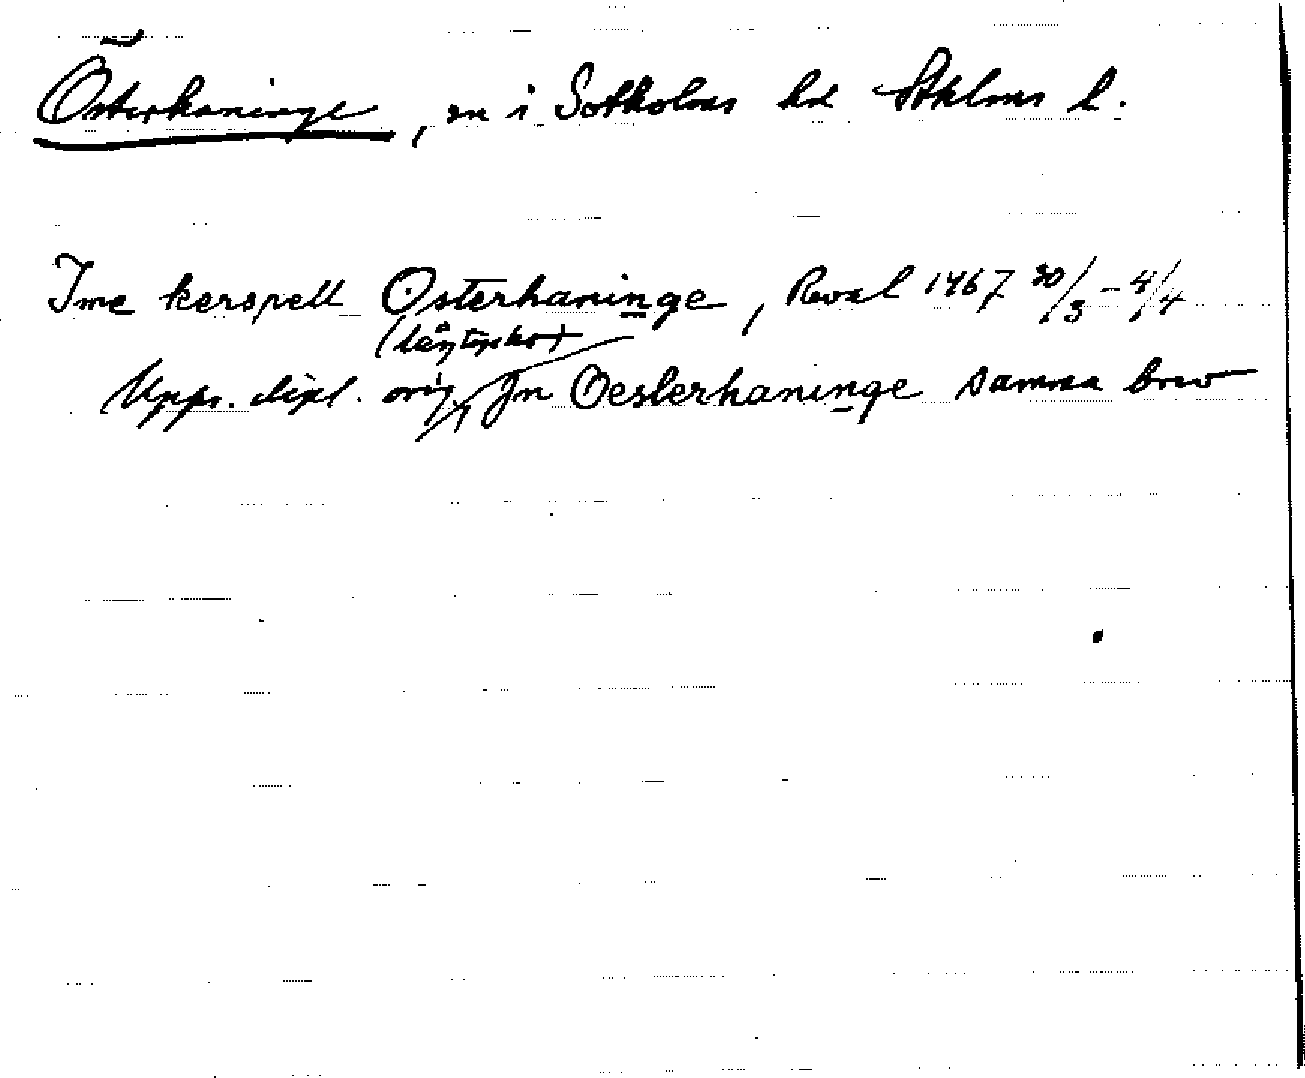 Österhaninge, sn i Sotholms hd Sthlms l.
Ime kerspell Osterhaninge, Reval 1467 30/3 – 4/4
(lågtyskt)
Upps. dipl. orig, Jn Oesterhaninge samma brev